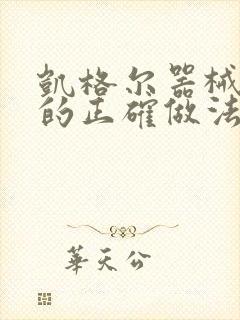 凱格尔器械
的正確做法
華天公